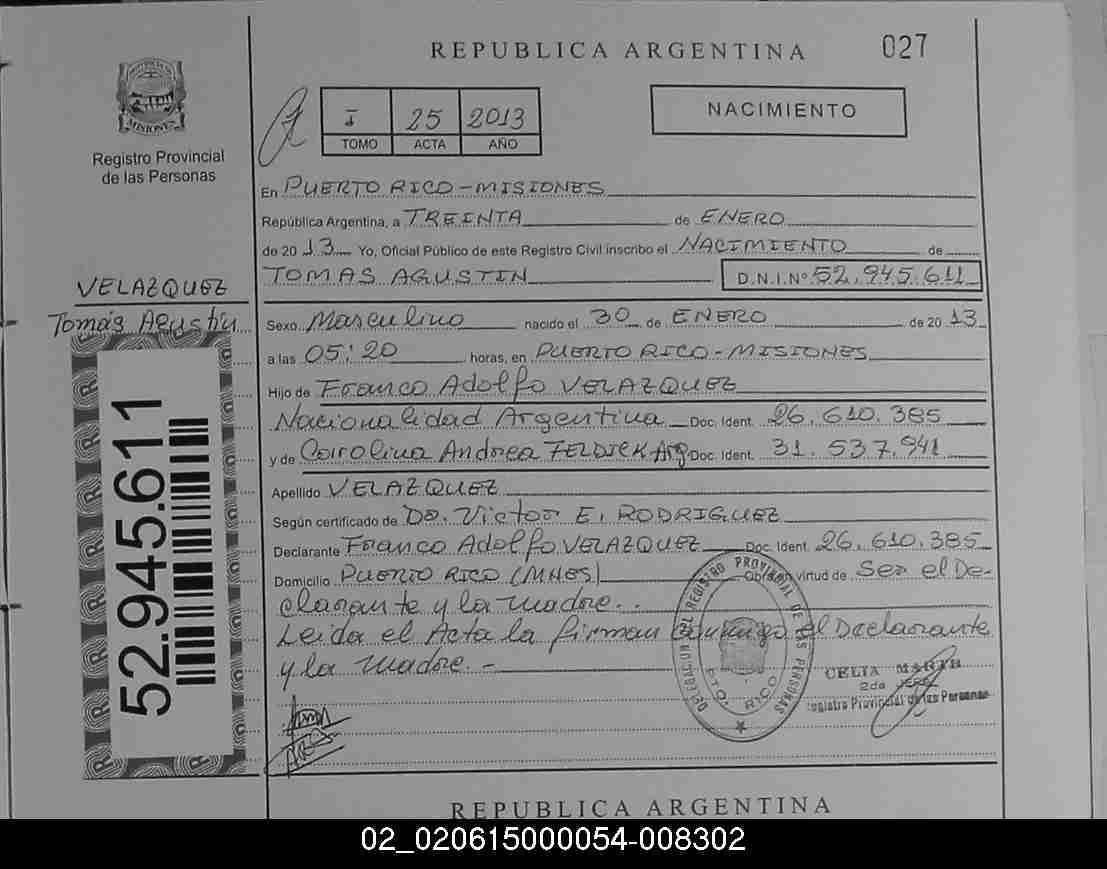 REPUBLICA ARGENTINA 027
MISIONES
Registro Provincial
de las Personas
I 25 2013
TOMO ACTA AÑO
NACIMIENTO
En PUERTO RICO-MISIONES
República Argentina, a TREINTA de ENERO
de 2013 Yo, Oficial Público de este Registro Civil inscribo el NACIMIENTO de
TOMAS AGUSTIN D.N.I.Nº 52.945.611
VELAZQUEZ
Tomás Agustín
Sexo Masculino nacido el 30 de ENERO de 2013
a las 05:20 horas, en PUERTO RICO-MISIONES
Hijo de Franco Adolfo VELAZQUEZ
Nacionalidad Argentina Doc. Ident. 26.610.385
y de Carolina Andrea Arg Doc. Ident. 31.537.941
Apellido VELAZQUEZ
Según certificado de Dr. Victor E. RODRIGUEZ
Declarante Franco Adolfo VELAZQUEZ Doc. Ident. 26.610.385
Domicilio PUERTO RICO (MNES) Obra en virtud de Ser el De-
clarante y la madre..
Leida el Acta la firman conmigo el Declarante
y la madre.-
52.945.611
DELEGACION DEL REGISTRO PROVINCIAL DE LAS PERSONAS
PTO. RICO
CELIA
2da JEFE
Registro Provincial de las Personas
REPUBLICA ARGENTINA
02_020615000054-008302